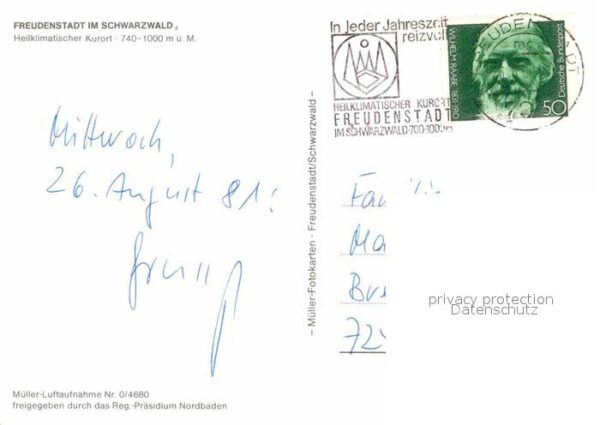 FREUDENSTADT IM SCHWARZWALD
Heilklimatischer Kurort · 740–1000 m ü. M.
In jeder Jahreszeit
reizvoll
HEILKLIMATISCHER KURORT
FREUDENSTADT
IM SCHWARZWALD·700-1000M
WILHELM RAABE 1831-1910
Deutsche Bundespost
50
Mittwoch,
26. August 81!
– Müller-Fotokarten · Freudenstadt/Schwarzwald –
privacy protection
Datenschutz
Müller-Luftaufnahme Nr. 0/4680
freigegeben durch das Reg.-Präsidium Nordbaden